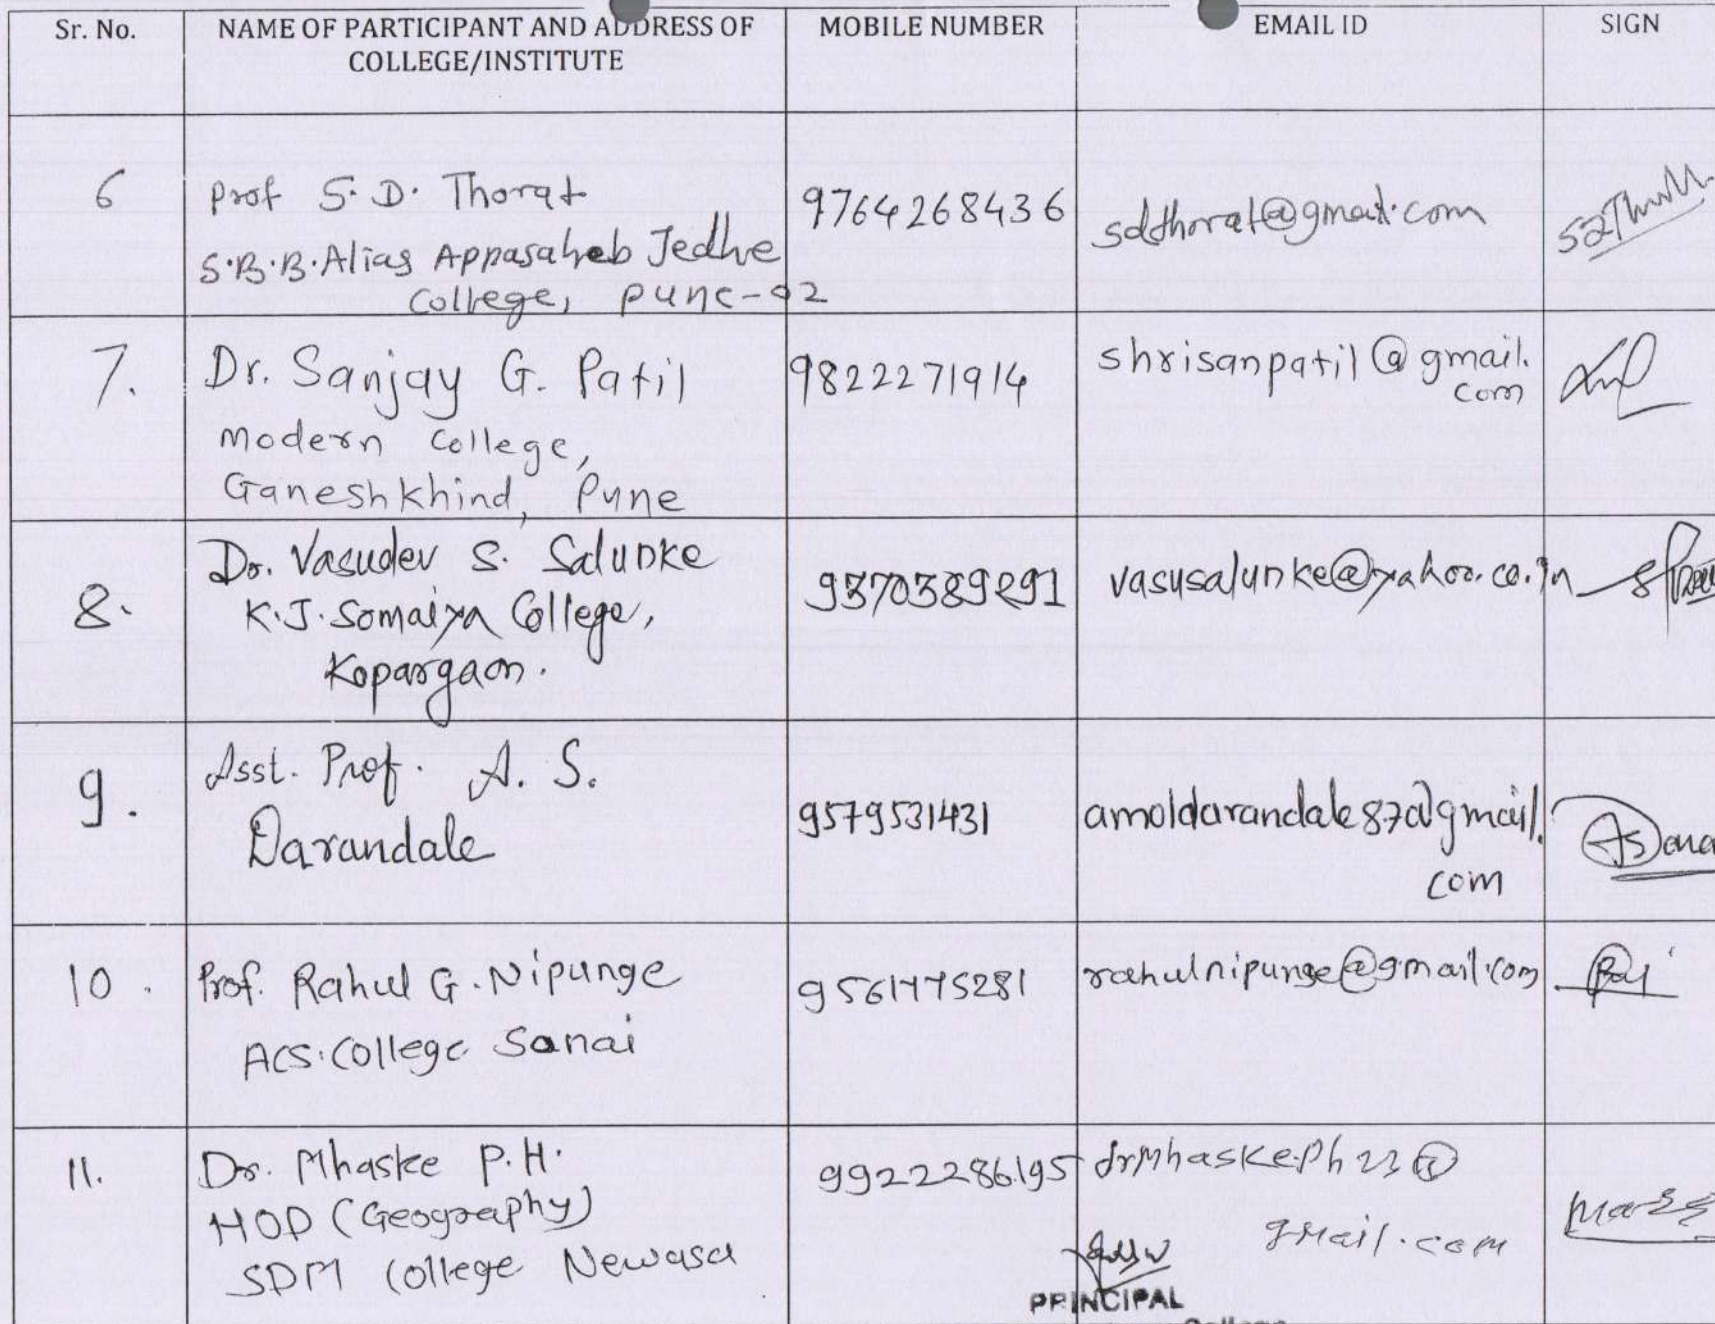 Sr. No.
NAME OF PARTICIPANT AND ADDRESS OF
COLLEGE/INSTITUTE
MOBILE NUMBER
EMAIL ID
SIGN
6
Prof S. D. Thorat
S.B.B. Alias Appasaheb Jedhe
College, Pune-02
9764268436
sddthorat@gmail.com
7.
Dr. Sanjay G. Patil
Modern College,
Ganeshkhind, Pune
9822271914
shrisanpatil@gmail.
com
8.
Dr. Vasudev S. Salunke
K.J. Somaiya College,
Kopargaon.
9370389291
vasusalunke@yahoo.co.in
9.
Asst. Prof. A. S.
Darandale
9579531431
amoldarandale87@gmail.
com
10.
Prof. Rahul G. Nipunge
ACS. College Sonai
rahulnipunge@gmail.com
11.
Dr. Mhaske P.H.
HOD (Geography)
SDM College Newasa
9922286195
drmhaske.ph23@
gmail.com
PRINCIPAL